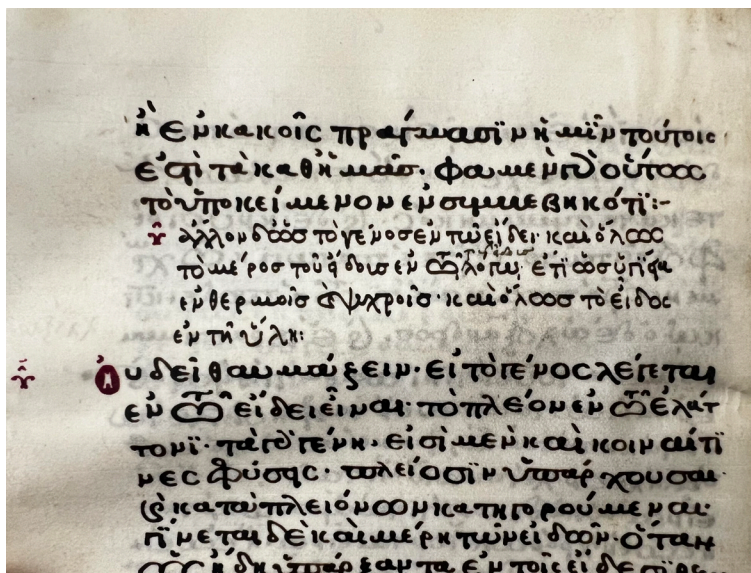 ἢ ἐν κακοῖς πράγμασϊν ἡμῖν τούτοις
ἐστὶ τὰ καθ' ἡμᾶσ· φαμὲν οὕτως
τὸ ὑποκείμενον ἐν συμβεβηκότϊ:-
ἄλλον δ ὡσ τὸ γένοσ ἐν τῶ εἴδει· καὶ ὅλωσ
τὸ μέροσ τοῦ εἴδουσ ἐν τῶ λόγω ἔτϊ ὡσ ὑγίεια
ἐν θερμοῖσ ψυχροῖσ· καὶ ὅλωσ τὸ εἶδος
ἐν τῆ ὕλη:
Οὐ δεῖ θαυμάζειν· εἰ τὸ γένος λέγεται
ἐν τῶ εἴδει εἶναι· τὸ πλέον ἐν τῶ ἐλάτ
τονϊ· τὰ γένη· εἰσὶ μὲν καὶ κοιναί τϊ
νες φύσεις· πλείοσϊν ὑπάρχουσαι·
κατὰ πλειόνων κατηγορούμεναι·
γίνεται δὲ καὶ μέρη τῶν εἰδῶν· ὅταν